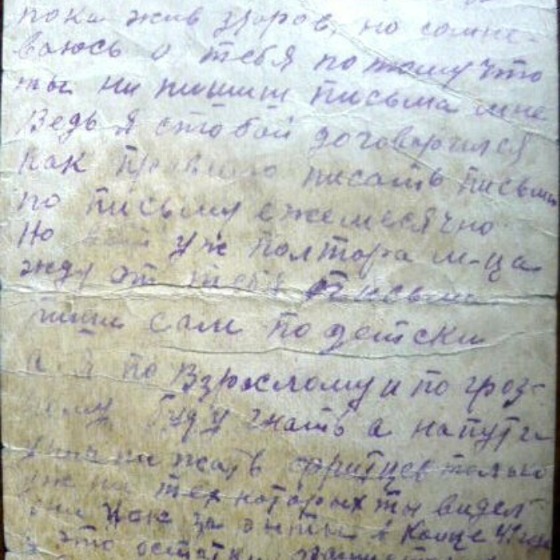 пока жив здоров, но сомне-
ваюсь о тебя потому что
ты ни пишиш письма мне
Ведь я стобой договорился
как правило писать письма
по письму ежемесячно
Но уж полтора м-ца
жду от тебя письма
пиши сам по детски
а я по взрослому и по гроз-
ному буду гнать а на пути
унич жать фрицев только
уж не тех которых ты видел
они как за в Конце 41
а это остатки